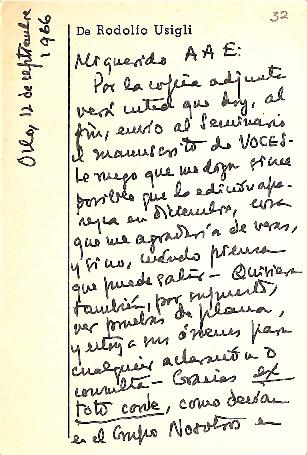 32
De Rodolfo Usigli
Oslo, 12 de septiembre
1966
Mi querido AAE:
Por la copia adjunta
verá usted que hoy, al
fin, envío al Seminario
el manuscrito de VOCES-
Le ruego que me diga si cree
posible que la edición apa-
rezca en diciembre, cosa
que me agradaría de veras,
y si no, cuándo piensa
que puede salir - Quisiera
también, por supuesto,
ver pruebas de plana,
y estoy a sus órdenes para
cualquier aclaración o
consulta - Gracias ex
toto corde, como decían
en el Grupo Nosotros en